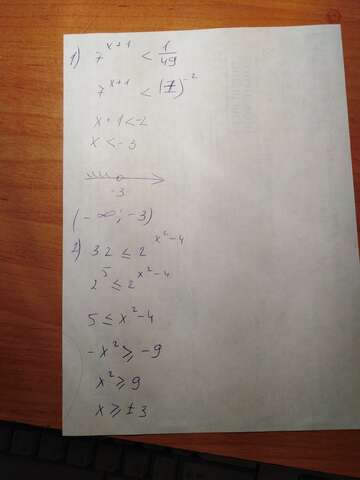 1) 7^{x+1} < \frac{1}{49}
7^{x+1} < (7)^{-2}
x+1<-2
x<-3
-3
(-∞; -3)
2) 32 ≤ 2^{x^2-4}
2^5 ≤ 2^{x^2-4}
5 ≤ x^2-4
-x^2 ≥ -9
x^2 ≥ 9
x ≥ ±3